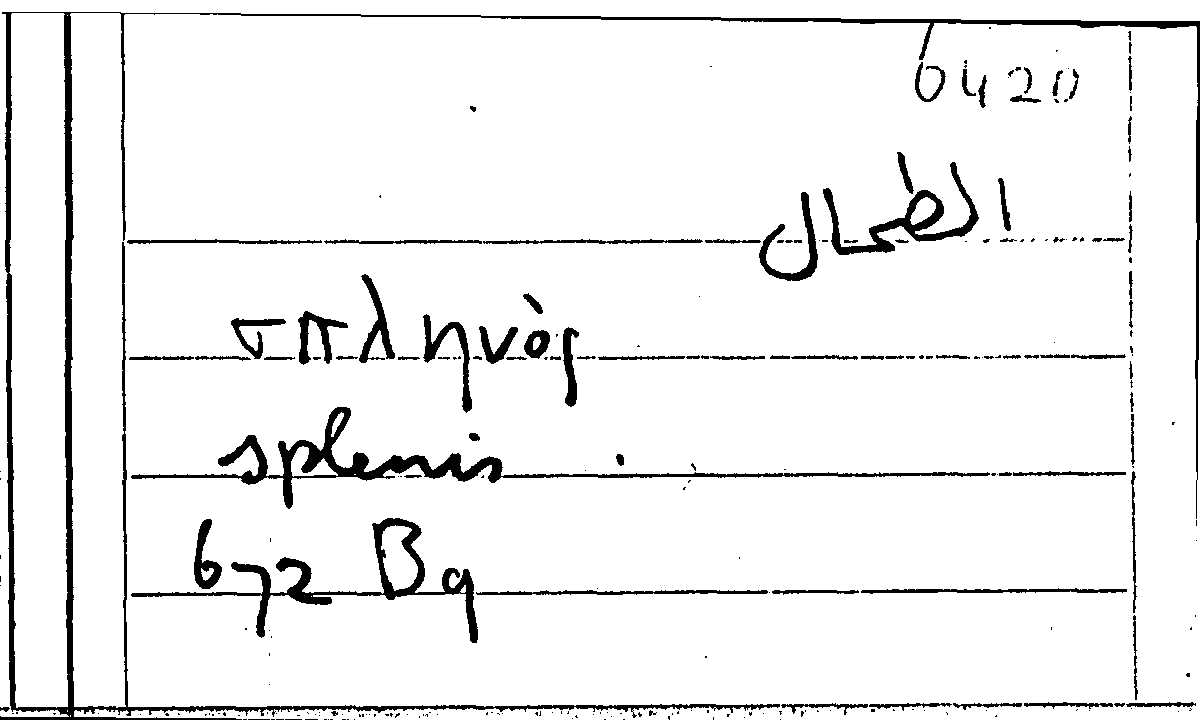 6420
الطحال
σπληνὸς
splenis
672 B9